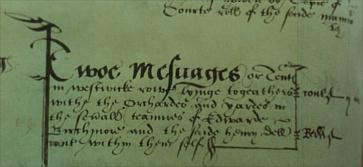 Courte roll of the saide manor
Twoe Mesuages or Tente
in westwicke rowe lyinge togeathers
with the Orchardes and yardes in
the sevall tenures of Edwarde
and the saide henry dell
within them selfe